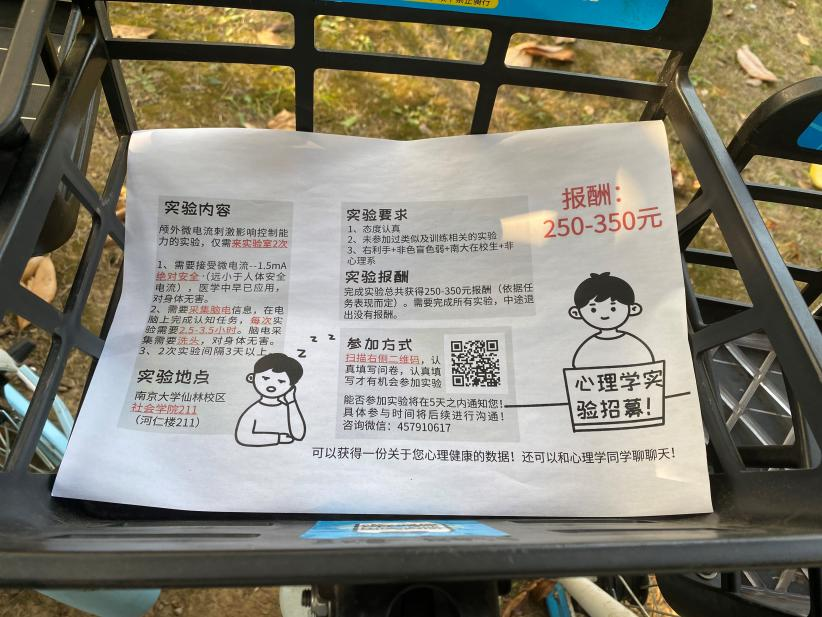 实验内容
颅外微电流刺激影响控制能
力的实验，仅需来实验室2次
1、需要接受微电流--1.5mA
绝对安全·(远小于人体安全
电流），医学中早已应用，
对身体无害。
2、需要采集脑电信息，在电
脑上完成认知任务，每次实
验需要2.5-3.5小时。脑电采
集需要洗头，对身体无害。
3、2次实验间隔3天以上
实验地点
南京大学仙林校区
社会学院211
（河仁楼211）
z z z
实验要求
1、态度认真
2、未参加过类似及训练相关的实验
3、右利手+非色盲色弱+南大在校生+非
心理系
实验报酬
完成实验总共获得250-350元报酬（依据任
务表现而定）。需要完成所有实验，中途退
出没有报酬。
参加方式
扫描右侧二维码，认
真填写问卷，认真填
写才有机会参加实验
能否参加实验将在5天之内通知您！
具体参与时间将后续进行沟通！
咨询微信：457910617
报酬：
250-350元
心理学实
验招募！
可以获得一份关于您心理健康的数据！还可以和心理学同学聊聊天！